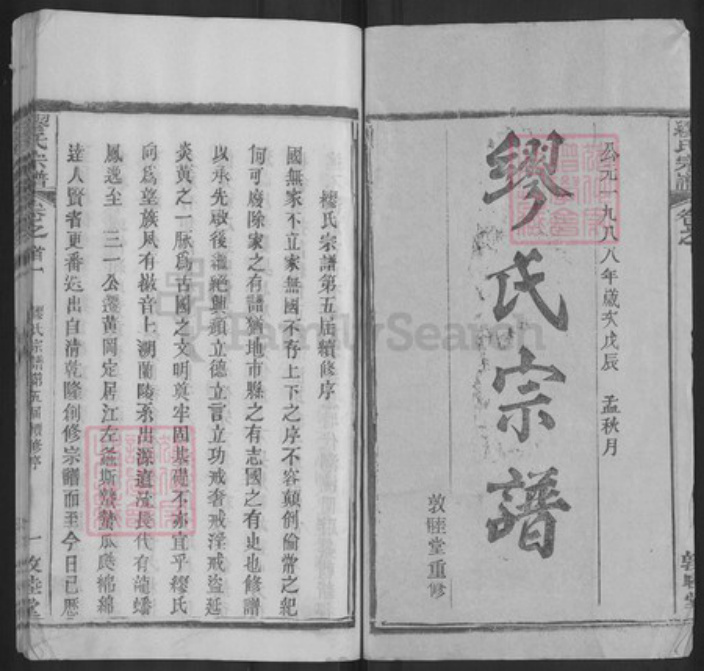 公元一九八八年歲次戊辰 孟秋月
繆氏宗譜
敦睦堂重修
繆氏宗譜
卷之
繆氏宗譜第五届續修序
國無家不立家無國不存上下之序不容顛倒倫常之紀
何可廢除家之有譜猶地市縣之有志國之有史也修譜
以承先啟後繼絕興頹立德立言立功戒奢戒淫戒盜延
炎黃之一脉爲古國之文明奠牢固基礎不亦宜乎繆氏
向爲望族夙有徽音上溯蘭陵系出源遠流長代有龍蟠
鳳逸至 三一公遷黃岡定居江左螽斯蟄蟄瓜瓞綿綿
達人賢省更番迭出自清乾隆創修宗譜而至今日已歷
繆氏宗譜
卷之首一
繆氏宗譜第五届續修序
一敦睦堂
FamilySearch